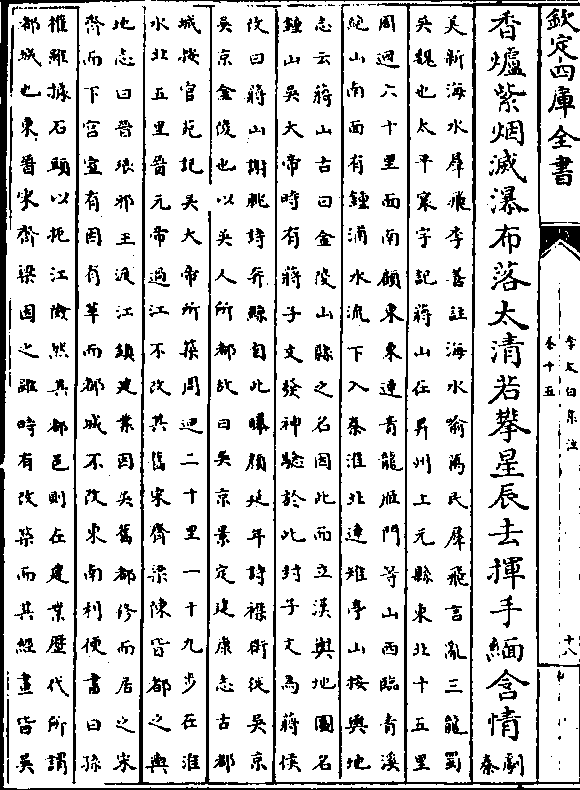 欽定四庫全書
李太白集注
卷十五
十八
香爐紫烟滅瀑布落太清若攀星辰去揮手緬含情
劇
秦
美新海水羣飛李善註海水喻萬民羣飛言亂三龍蜀
吳魏也太平寰宇記蔣山在昇州上元縣東北十五里
周迴六十里面南顧東東連青龍雁門等山西臨青溪
絶山南面有鍾浦水流下入秦淮北連雉亭山按輿地
志云蔣山古曰金陵山縣之名因此而立漢輿地圖名
鍾山吳大帝時有蔣子文發神驗於此封子文為蔣侯
改曰蔣山謝眺詩弈縣自此曝顔延年詩襟衛徙吳京
吳京金陵也以吳人所都故曰吳京景定建康志古都
城按宫苑記吳大帝所築周迴二十里一十九步在淮
水北五里晉元帝過江不改其舊宋齊梁陳皆都之輿
地志曰晉琅邪王渡江鎮建業因吳舊都修而居之宋
齊而下宫室有因有革而都城不改東南利便書曰孫
權雖據石頭以扼江險然其都邑則在建業歷代所謂
都城也東晉宋齊梁因之雖時有改築而其經畫皆吳